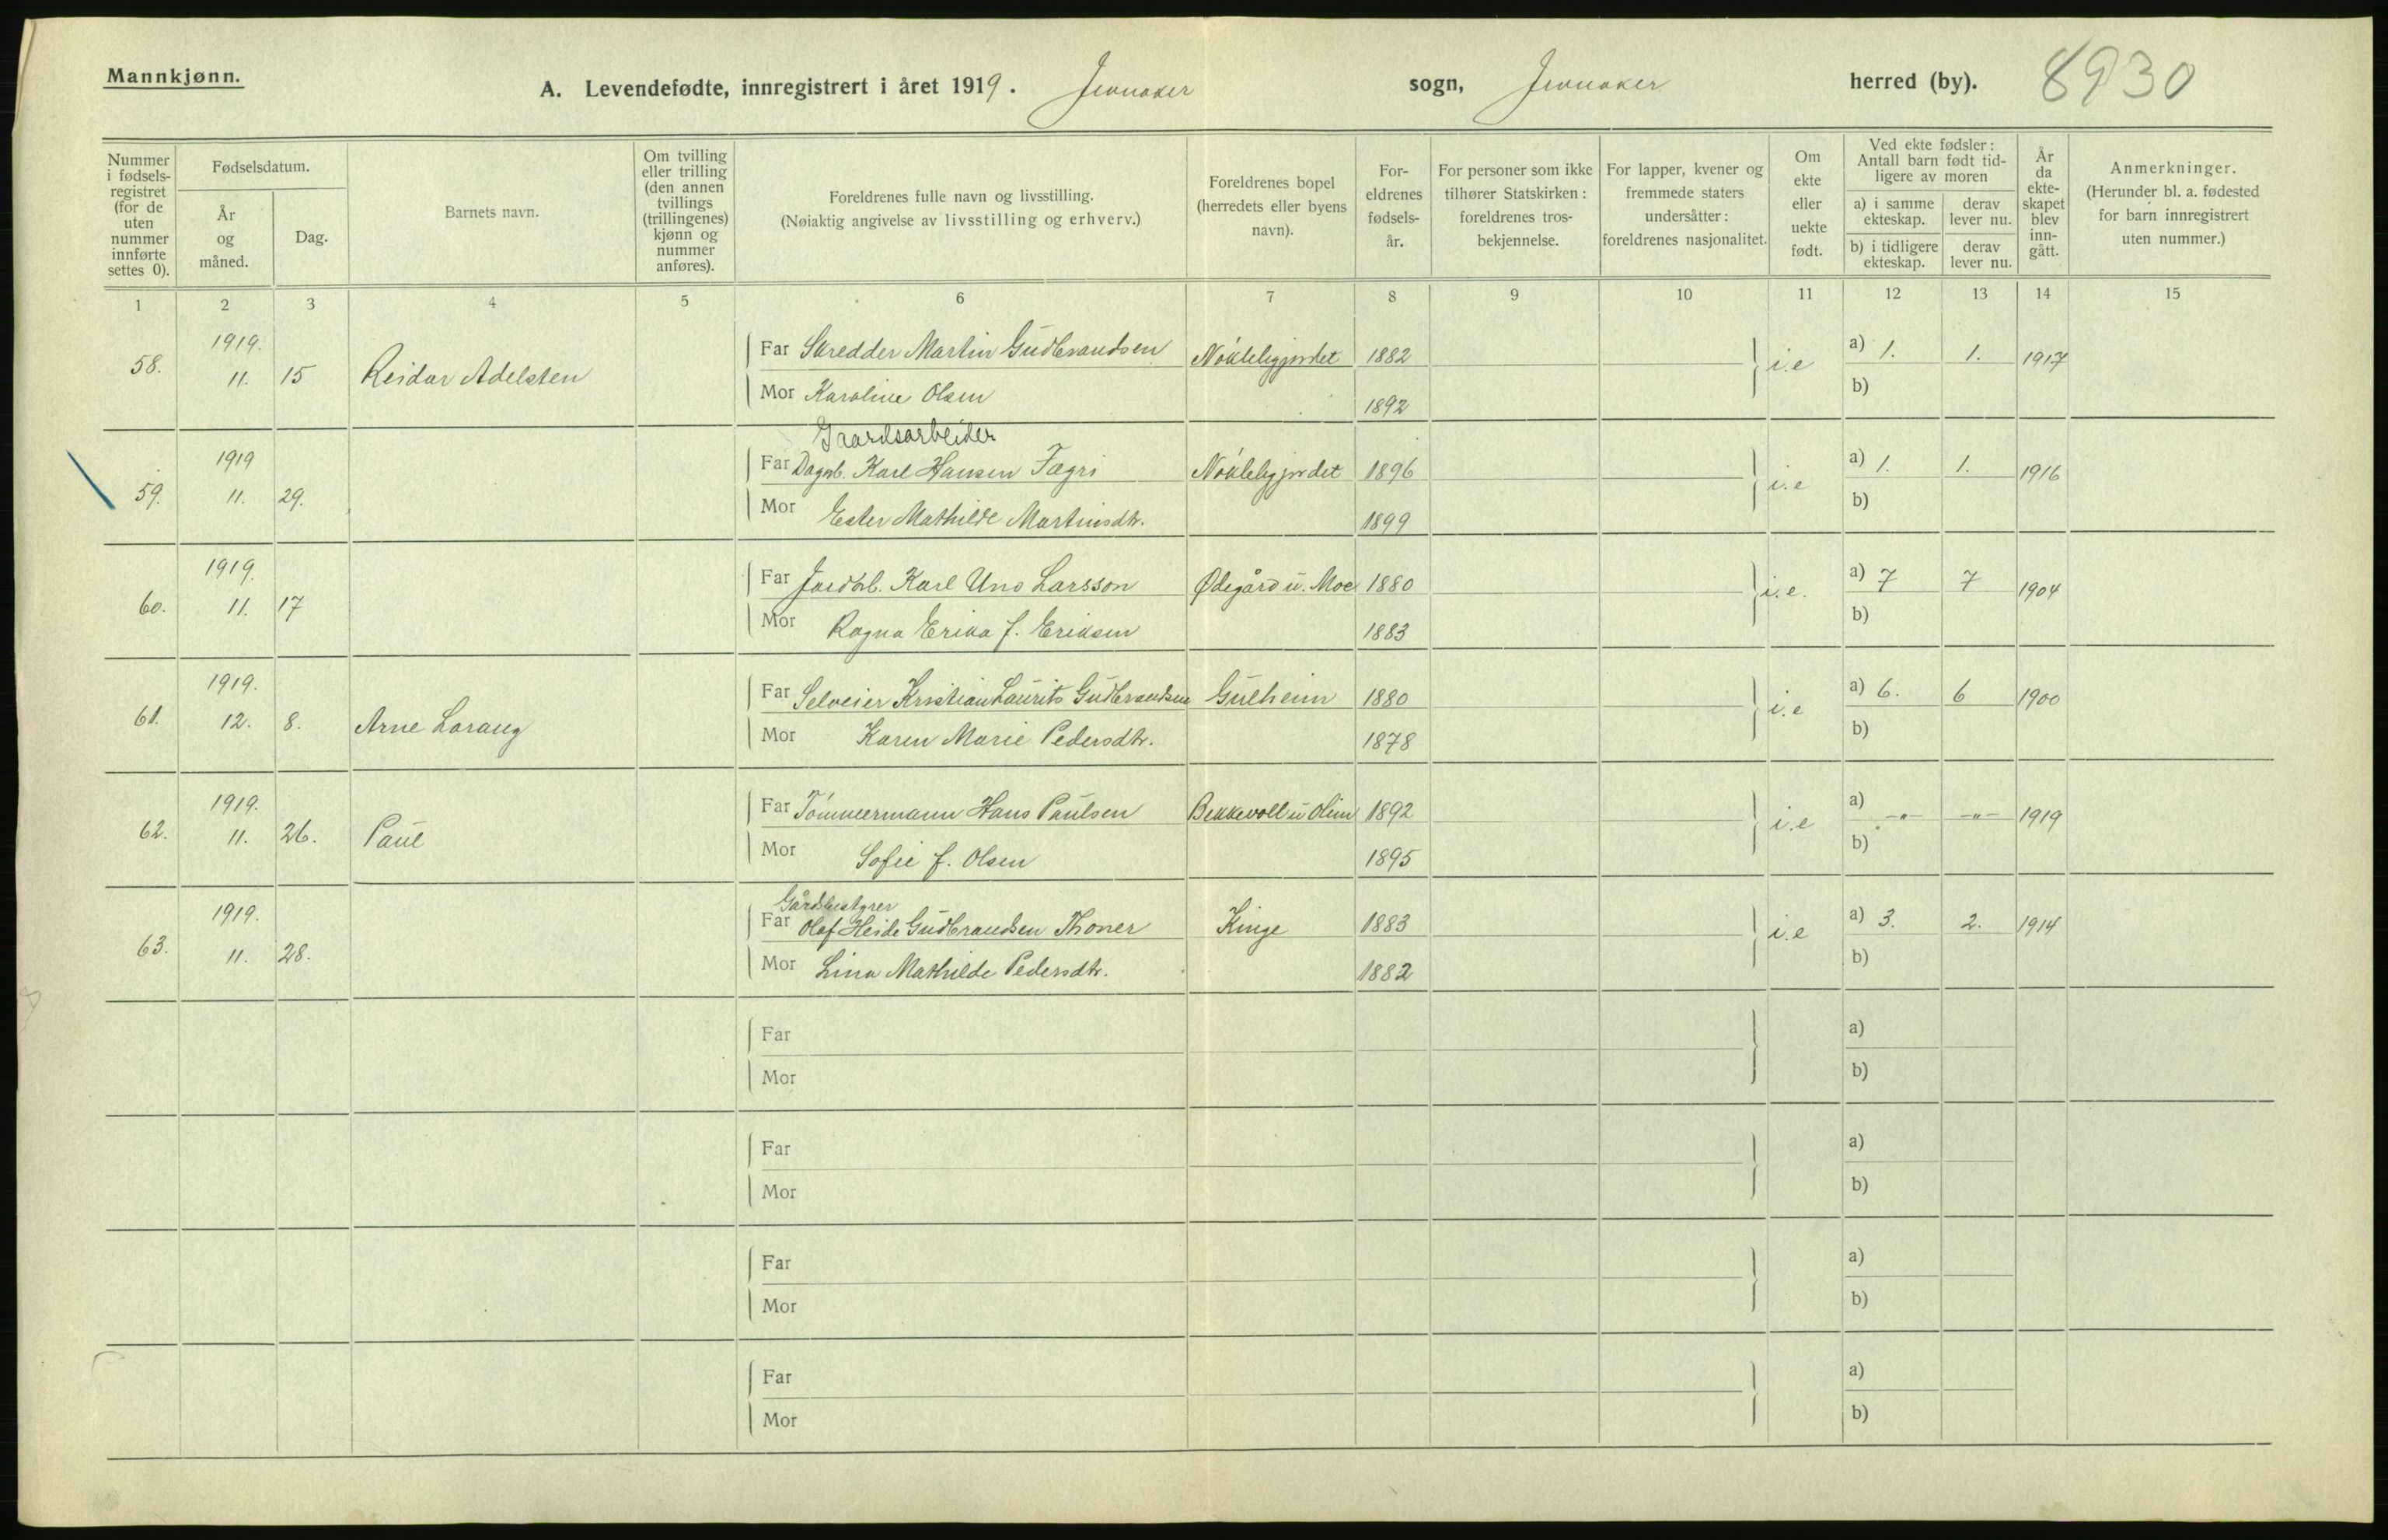 Mannkjønn.
A. Levendefødte, innregistrert i året 1919. Jevnaker sogn, Jevnaker herred (by). 8930
Nummer i fødsels-registret (for de uten nummer innførte settes 0).
Fødselsdatum.
År og måned.
Dag.
Barnets navn.
Om tvilling eller trilling (den annen tvillings (trillingenes) kjønn og nummer anføres).
Foreldrenes fulle navn og livsstilling.
(Nøiaktig angivelse av livsstilling og erhverv.)
Foreldrenes bopel (herredets eller byens navn).
For-eldrenes fødsels-år.
For personer som ikke tilhører Statskirken: foreldrenes tros-bekjennelse.
For lapper, kvener og fremmede staters undersåtter: foreldrenes nasjonalitet.
Om ekte eller uekte født.
Ved ekte fødsler: Antall barn født tid-ligere av moren
a) i samme ekteskap.
derav lever nu.
b) i tidligere ekteskap.
derav lever nu.
År da ekte-skapet blev inn-gått.
Anmerkninger.
(Herunder bl. a. fødested for barn innregistrert uten nummer.)
1 2 3 4 5 6 7 8 9 10 11 12 13 14 15
1919.
58. 11. 15 Reidar Adelsten
Far Skredder Martin Gudbrandsen Nøkleligjordet 1882 i.e a) 1. 1. 1917
Mor Karoline Olsen 1892 b)
Gaardsarbeider
1919
59. 11. 29.
Far Dagarb. Karl Hansen Fægri Nøkleligjordet 1896 i.e a) 1. 1. 1916
Mor Ester Mathilde Martinsdtr. 1899 b)
1919.
60. 11. 17
Far Jordbr. Karl Uno Larsson Ødegård u. Moe 1880 i.e. a) 7 7 1904
Mor Ragna Erika f. Eriksen 1883 b)
1919.
61. 12. 8. Arne Lorang
Far Selveier Kristian Laurits Gudbrandsen Gulheim 1880 i.e a) 6. 6 1900
Mor Karen Marie Pedersdtr. 1878 b)
1919.
62. 11. 26. Paul
Far Tömmermann Hans Paulsen Bekkevoll u Olim 1892 i.e a) -"- -"- 1919
Mor Sofie f. Olsen 1895 b)
Gårdsbestyrer
1919.
63. 11. 28.
Far Olaf Heide Gudbrandsen Thoner Kinge 1883 i.e a) 3. 2. 1914
Mor Lina Mathilde Pedersdtr. 1882 b)
Far a)
Mor b)
Far a)
Mor b)
Far a)
Mor b)
Far a)
Mor b)